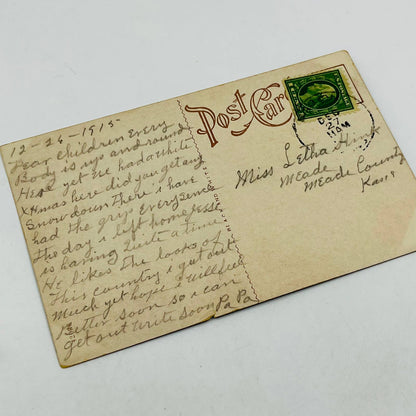 12-26-1915
Dear Children Every
Body is up and round
Here yet we had a white
Xmas here did you get any
Snow down there i have
had the grip every sence
the day i left home Jesse
is having quite a time
He likes the looks of
This country i get out
Much yet hope i will feel
Better soon so i can
get out write soon Pa Pa
Post Card
DEC 27
11 AM
Miss Letha Hink
Meade
Meade County
Kans